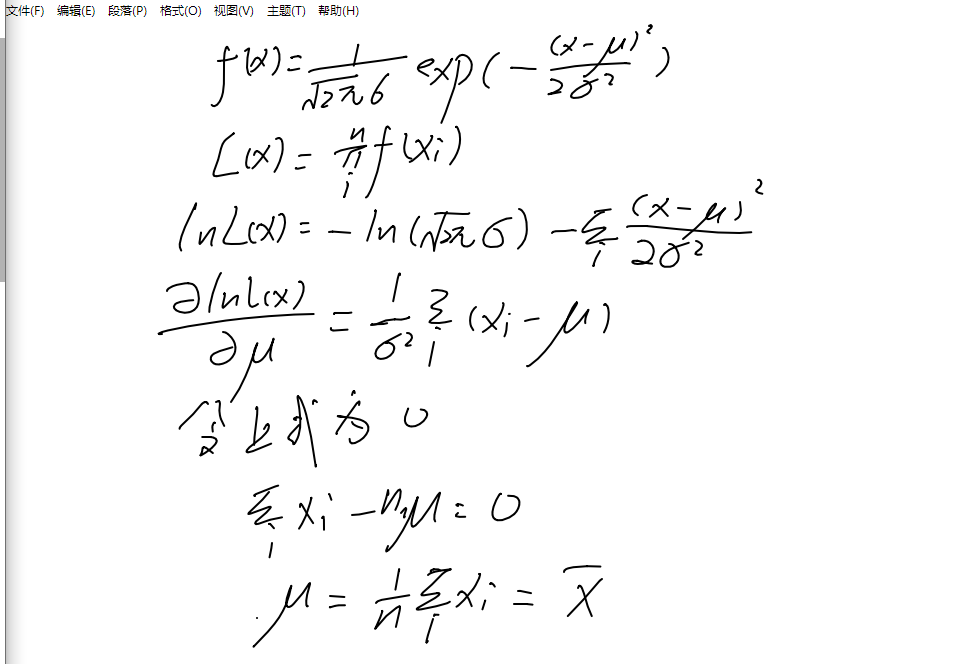 文件(F) 编辑(E) 段落(P) 格式(O) 视图(V) 主题(T) 帮助(H)
f(x) = 1/(√2π σ) exp(-(x-μ)²/(2σ²))
L(x) = ∏ᵢⁿ f(xᵢ)
ln L(x) = -ln(√2π σ) - Σᵢ (x-μ)²/(2σ²)
∂lnL(x)/∂μ = 1/σ² Σᵢ (xᵢ-μ)
令上式为 0
Σᵢ xᵢ - nμ = 0
μ = 1/n Σᵢ xᵢ = x̄